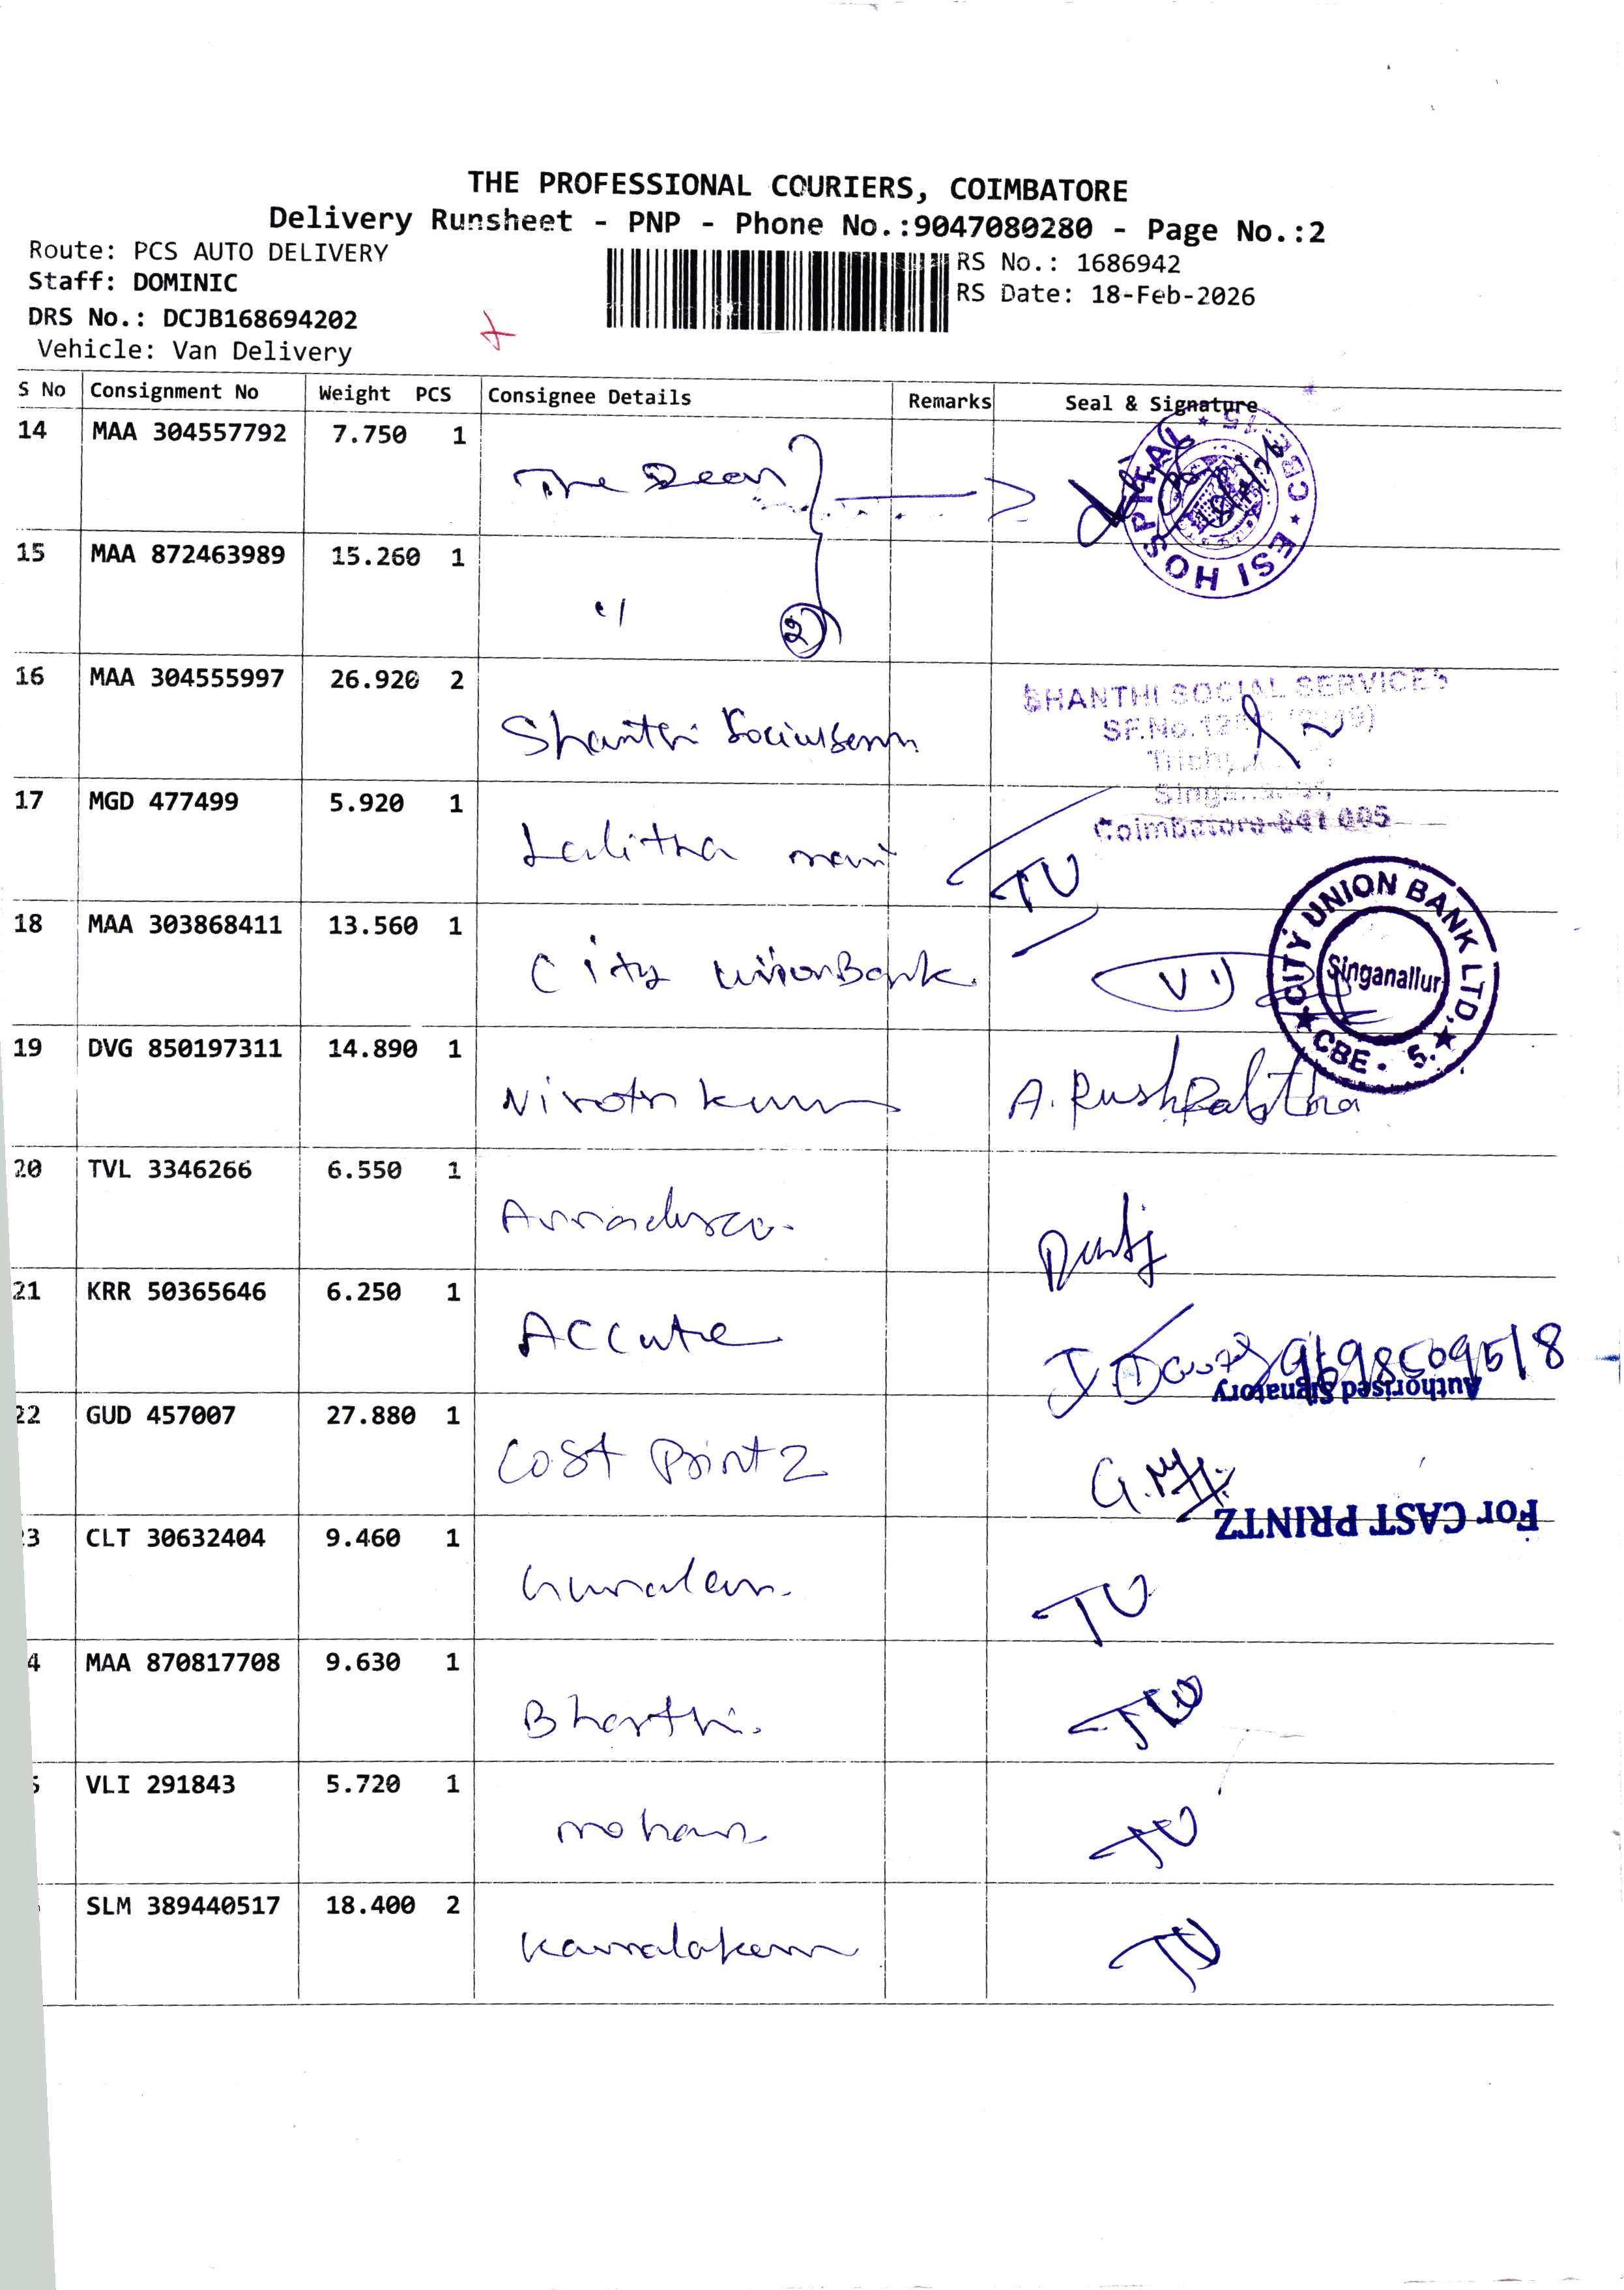 THE PROFESSIONAL COURIERS, COIMBATORE
Delivery Runsheet - PNP - Phone No.:9047080280 - Page No.:2
Route: PCS AUTO DELIVERY
RS No.: 1686942
Staff: DOMINIC
RS Date: 18-Feb-2026
DRS No.: DCJB168694202
Vehicle: Van Delivery
S No Consignment No Weight PCS Consignee Details Remarks Seal & Signature
14 MAA 304557792 7.750 1
The Dean
ESI HOSPITAL CBE-15
15 MAA 872463989 15.260 1
"
2
16 MAA 304555997 26.920 2
Shanthi
SHANTHI SOCIAL SERVICES
SF.No.
Coimbatore-641 005
17 MGD 477499 5.920 1
Lalitha mani
TU
18 MAA 303868411 13.560 1
City Union Bank.
CITY UNION BANK LTD. Singanallur CBE - 5.
19 DVG 850197311 14.890 1
A.
20 TVL 3346266 6.550 1
21 KRR 50365646 6.250 1
Accute
Authorised Signatory
22 GUD 457007 27.880 1
Cost Printz
For CAST PRINTZ
3 CLT 30632404 9.460 1
TU
4 MAA 870817708 9.630 1
Bharthi.
VLI 291843 5.720 1
mohan
TU
SLM 389440517 18.400 2
TU